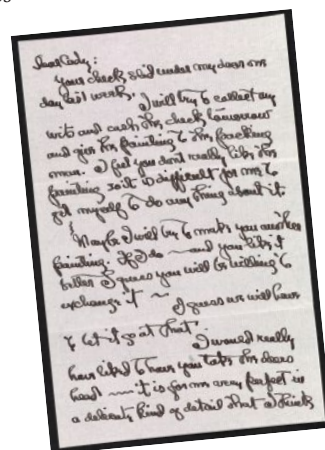 Dear Cady:
Your check slid under my door one
day last week. I will try to collect my
wits and cash the check tomorrow
and give the painting to the packing
man. I feel you dont really like the
painting so it is difficult for me to
get myself to do any thing about it.
Maybe I will try to make you another
painting. If I do — and you like it
better I guess you will be willing to
exchange it ~
I guess we will have
to let it go at that.
I would really
have liked to have you take the deers
head ~ it is for me a very perfect in
a delicate kind of detail that I think